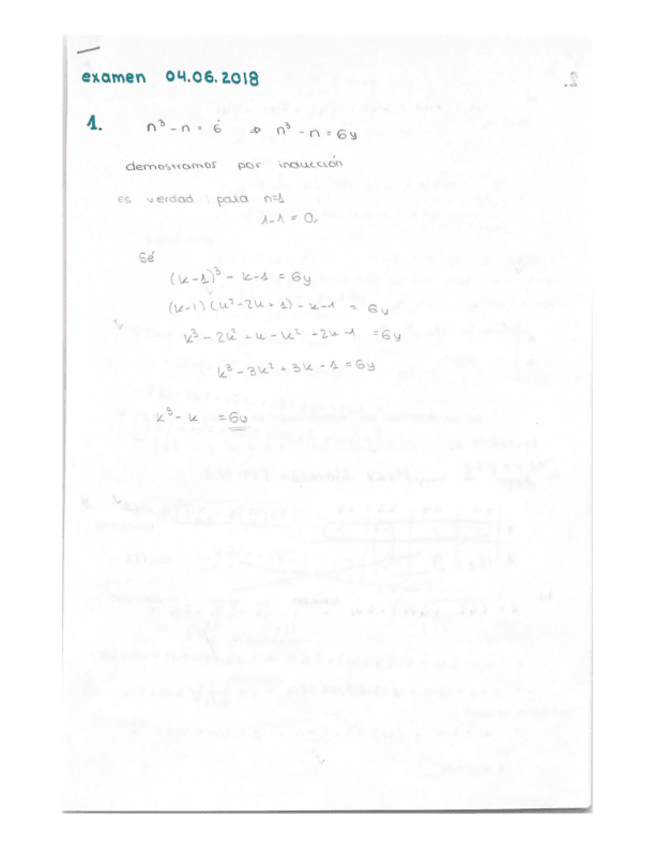 examen 04.06.2018
2.
1. n³ - n = 6̇ ⇒ n³ - n = 6y
demostramos por inducción
es verdad para n=1
1-1 = 0,
Sé
(k-1)³ - k-1 = 6y
(k-1)(k²-2k+1) - k-1 = 6y
k³ - 2k² + k - k² + 2k - 1 = 6y
k³ - 3k² + 3k - 1 = 6y
k³ - k = 6y